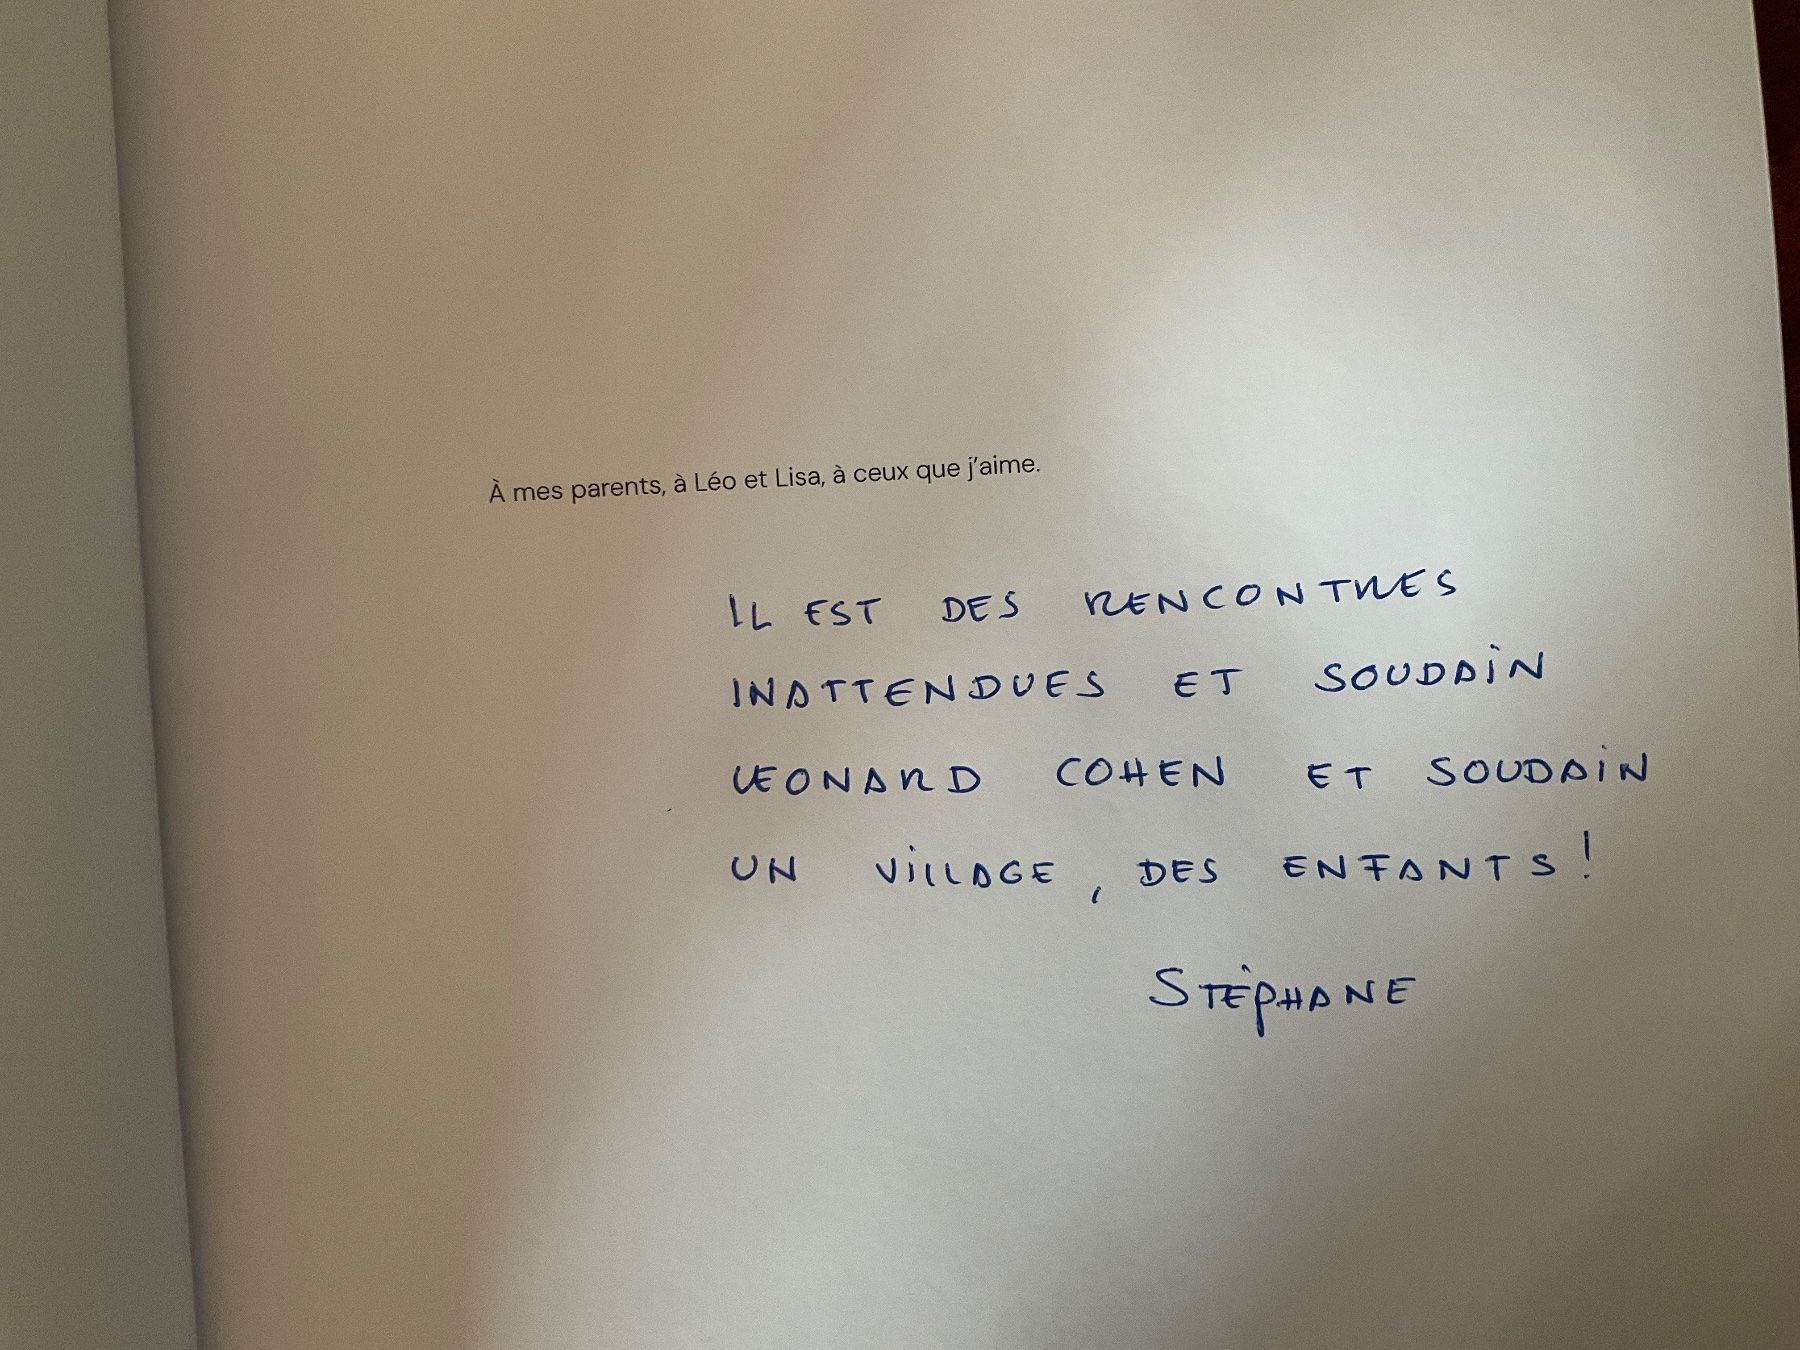 À mes parents, à Léo et Lisa, à ceux que j'aime.
IL EST DES RENCONTRES
INATTENDUES ET SOUDAIN
LEONARD COHEN ET SOUDAIN
UN VILLAGE, DES ENFANTS !
STÉPHANE